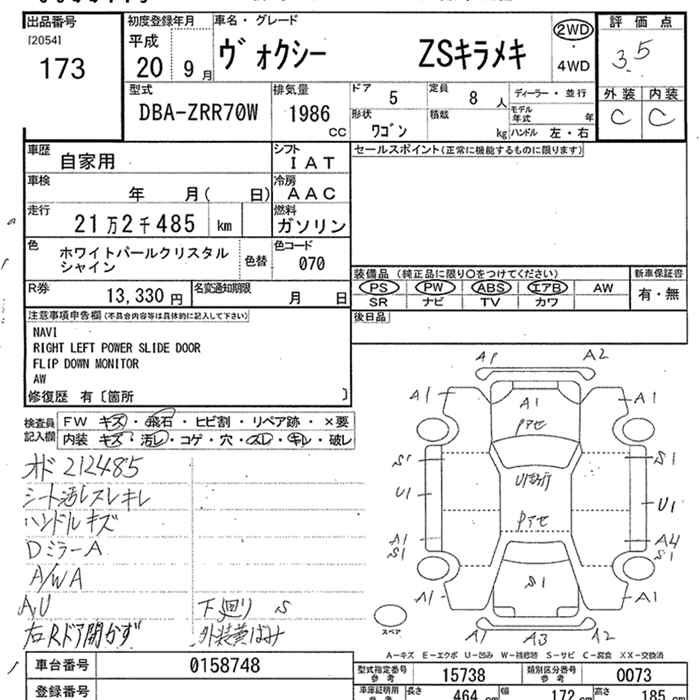 出品番号
[2054]
173
初度登録年月
平成
20 9月
車名・グレード
ヴォクシー ZSキラメキ
2WD
・
4WD
評価点
3.5
外装 内装
C C
型式
DBA-ZRR70W
排気量
1986
CC
ドア 5
定員 8人
形状 ワゴン
積載 kg
ディーラー・並行
モデル年式 年
ハンドル 左・右
車歴 自家用
シフト IAT
車検 年 月( 日)
冷房 AAC
走行 21万2千485 km
燃料 ガソリン
色 ホワイトパールクリスタル
シャイン
色替
色コード
070
R券 13,330円
名変通知期限 月 日
セールスポイント(正常に機能するものに限ります)
装備品 (純正品に限り○をつけてください)
PS PW ABS エアB AW
SR ナビ TV カワ
新車保証書
有・無
後日品
注意事項申告欄(不具合内容等は具体的に記入して下さい)
NAVI
RIGHT LEFT POWER SLIDE DOOR
FLIP DOWN MONITOR
AW
修復歴 有〔箇所 〕
検査員
記入欄
FW キズ・飛石・ヒビ割・リペア跡・×要
内装 キズ・汚レ・コゲ・穴・スレ・キレ・破レ
オド 212485
シート汚レスレキレ
ハンドルキズ
DミラーA
A/W A
A,U
右Rドア開かず
下廻り S
外装黄ばみ
A1 A2
A1 A1 A1
Pアセ
S1 S1
U1
U1
U1
Pアセ
A1
S1
A4
S1
S1
A1 A1
A1 A3 A2
スペア
A-キズ E-エクボ U-凹み W-補修跡 S-サビ C-腐食 XX-交換済
車台番号 0158748
登録番号
型式指定番号
参考
15738
類別区分番号
参考
0073
車庫証明用
参考
長さ 464 cm 幅 172 cm 高さ 185 cm